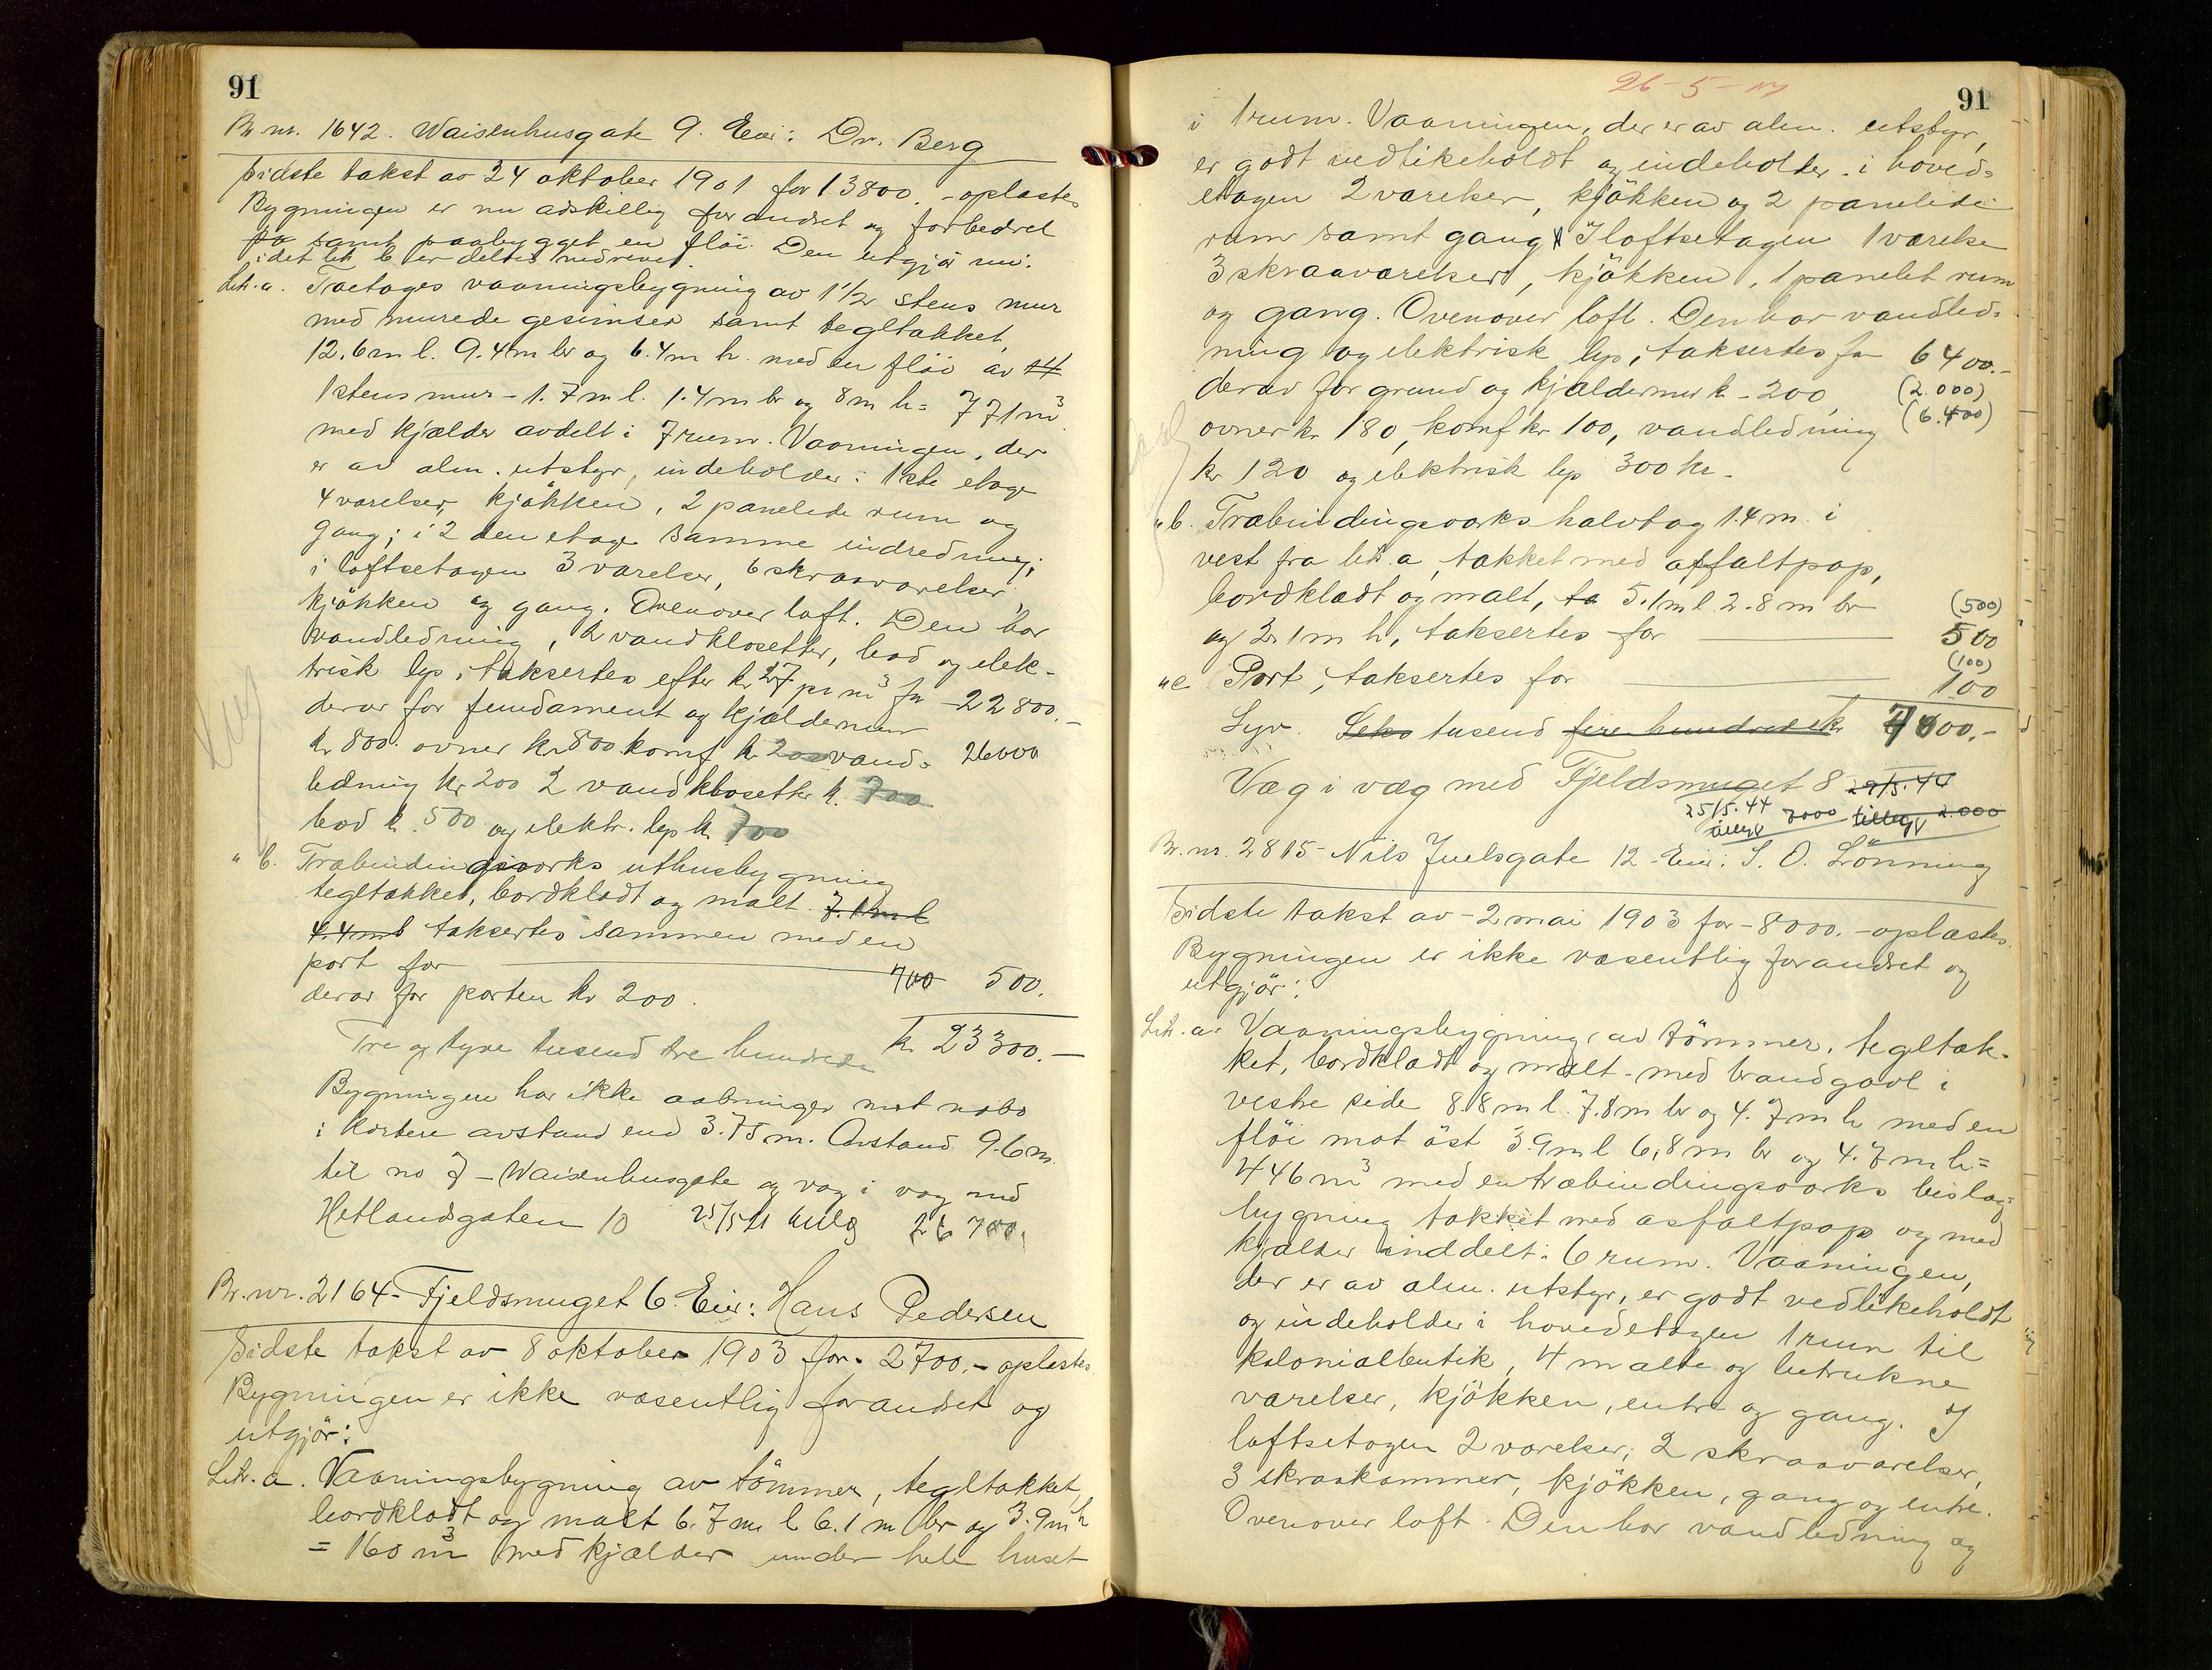 91
Br. nr. 1642. Waisenhusgate 9. Eier: Dr. Berg
Sidste takst av 24 oktober 1901 for 13800. - oplæstes
Bygningen er nu adskillig forandret og forbedret
samt paabygget en flöi. Den utgjør nu:
idet litr. b er deltes nedrevet.
Litr. a. Toetages vaaningsbygning av 1 1/2 stens mur
med murede gesimser samt tegltækket,
12.6 m l. 9.4 m br og 6.4 m h. med en flöi av 14
1 stens mur - 1.7 m l. 1.4 m br og 8 m h = 771 m³
med kjælder avdelt i 7 rum. Vaaningen, der
er av alm. utstyr, indeholder: 1ste etage
4 værelser, kjökken, 2 panelede rum og
gang; i 2den etage samme indredning;
i loftsetagen 3 værelser, 6 skraaværelser,
kjökken og gang. Ovenover loft. Den har
vandledning, 2 vandklosetter, bad og elek-
trisk lys, taksertes efter kr 27 pr m³ for - 22800.-
derav for fundament og kjældermur
kr 800. ovner kr 800 komf kr 200 vand- 26000
ledning kr 200 2 vandklosetter kr 700
bad kr 500 og elektr. lys kr 700
" b. Træbindingsverks uthusbygning
tegltækket, bordklædt og malt. 7.1 m l
4.4 m b taksertes sammen med en
port for 700 500.
derav for porten kr 200.
Tre og tyve tusend tre hundrede kr. 23300.-
Bygningen har ikke aabninger mot nabo
i kortere avstand end 3.75 m. Avstand 9.6 m.
til no 7 - Waisenhusgate og væg i væg med
Hetlandsgaten 10 25/5 41 tillæg 26 700.
Br. nr. 2164 - Fjeldsmuget 6. Eier: Hans Pedersen
Sidste takst av 8 oktober 1903 for - 2700.- oplæstes.
Bygningen er ikke væsentlig forandret og
utgjör:
Litr. a. Vaaningsbygning av tömmer, tegltækket,
bordklædt og malt 6.7 m l 6.1 m br og 3.9 m h
= 160 m³ med kjælder under hele huset
26-5-
91
i 1 rum. Vaaningen, der er av alm. utstyr,
er godt vedlikeholdt og indeholder i hoved-
etagen 2 værelser, kjökken og 2 panelede
rum samt gang. I loftsetagen 1 værelse
3 skraaværelser, kjökken, 1 panelet rum
og gang. Ovenover loft. Den har vandled-
ning og elektrisk lys, taksertes for 6400.-
derav for grund og kjældermur kr - 200, (2.000)
ovner kr 180, komf kr 100, vandledning (6.400)
kr 120 og elektrisk lys 300 kr.
" b. Træbindingsverks halvtag 1.4 m. i
vest fra litr. a, tækket med asfaltpap,
bordklædt og malt, ta 5.1 m l 2.8 m br (500)
og 2.1 m h, taksertes for 500
(100)
" c Port, taksertes for 100
Syv Seks tusend fire hundrede kr 7000.-
Væg i væg med Fjeldsmuget 8 29/5.44
25/5.44 7000 tillæg 2.000
tillæg
Br. nr. 2815 - Nils Juelsgate 12 - Eier: S. O. Lönning
Sidste takst av - 2 mai 1903 for - 8000. - oplæstes.
Bygningen er ikke væsentlig forandret og
utgjör:
Litr. a. Vaaningsbygning av tömmer, tegltæk-
ket, bordklædt og malt - med brandgavl i
vestre side 8.8 m l 7.8 m br og 4.7 m h med en
flöi mot öst 3.9 m l 6,8 m br og 4.7 m h =
446 m³ med en træbindingsverks bislag-
bygning tækket med asfaltpap og med
kjælder inddelt i 6 rum. Vaaningen,
der er av alm. utstyr, er godt vedlikeholdt
og indeholder i hovedetagen 1 rum til
kolonialbutik, 4 malte og betrukne
værelser, kjökken, entre og gang. I
loftsetagen 2 værelser, 2 skraaværelser,
3 skraakammer, kjökken, gang og entre.
Ovenover loft. Den har vandledning og